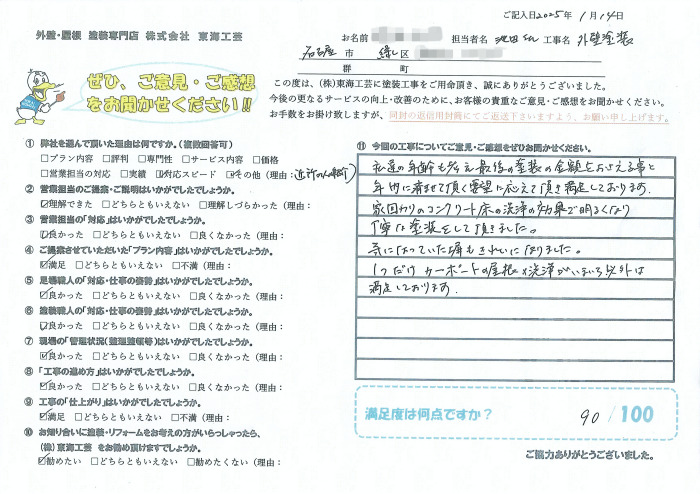 ご記入日2025年 1月14日
外壁・屋根 塗装専門店 株式会社 東海工芸
お名前 担当者名 池田さん 工事名 外壁塗装
名古屋 市 緑 区
郡 町
ぜひ、ご意見・ご感想
をお聞かせください!!
この度は、(株)東海工芸に塗装工事をご用命頂き、誠にありがとうございました。
今後の更なるサービスの向上・改善のために、お客様の貴重なご意見・ご感想をお聞かせください。
お手数をお掛け致しますが、同封の返信用封筒にてご返送下さいますよう、お願い申し上げます。
① 弊社を選んで頂いた理由は何ですか。(複数回答可)
□プラン内容 □評判 □専門性 □サービス内容 □価格
□営業担当の対応 □実績 ☑対応スピード ☑その他(理由:近所の人の紹介)
② 営業担当のご提案・ご説明はいかがでしたでしょうか。
☑理解できた □どちらともいえない □理解しづらかった(理由:
③ 営業担当の「対応」はいかがでしたでしょうか。
☑良かった □どちらともいえない □良くなかった(理由:
④ ご提案させていただいた「プラン内容」はいかがでしたでしょうか。
☑満足 □どちらともいえない □不満(理由:
⑤ 足場職人の「対応・仕事の姿勢」はいかがでしたでしょうか。
☑良かった □どちらともいえない □良くなかった(理由:
⑥ 塗装職人の「対応・仕事の姿勢」はいかがでしたでしょうか。
☑良かった □どちらともいえない □良くなかった(理由:
⑦ 現場の「管理状況(整理整頓等)はいかがでしたでしょうか。
☑良かった □どちらともいえない □良くなかった(理由:
⑧ 「工事の進め方」はいかがでしたでしょうか。
☑良かった □どちらともいえない □良くなかった(理由:
⑨ 工事の「仕上がり」はいかがでしたでしょうか。
☑満足 □どちらともいえない □不満(理由:
⑩ お知り合いに塗装・リフォームをお考えの方がいらっしゃったら、
(株)東海工芸 をお勧め頂けますでしょうか。
☑勧めたい □どちらともいえない □勧めたくない(理由:
⑪ 今回の工事についてご意見・ご感想をお聞かせください。
私達の年齢も考え最後の塗装の金額をおさえる事と
年内に済ませて頂く要望に応えて頂き満足しております。
家回わりのコンクリート床の洗浄の効果で明るくなり
丁寧な塗装をして頂きました。
気になっていた塀もきれいになりました。
1つだけカーポートの屋根の洗浄がいまいち以外は
満足しております。
満足度は何点ですか? 90/100
ご協力ありがとうございました。